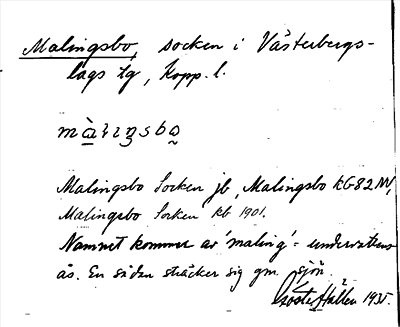 Malingsbo, socken i Västerbergs-
lags tg, Kopp. l.
màlıŋsbo
Malingsbo Socken jb, Malingsbo kG82 NV,
Malingsbo Socken kb 1901.
Namnet kommer av 'maling' = undervattens
ås. En sådan sträcker sig gm sjön.
Gösta Hallen 1935.